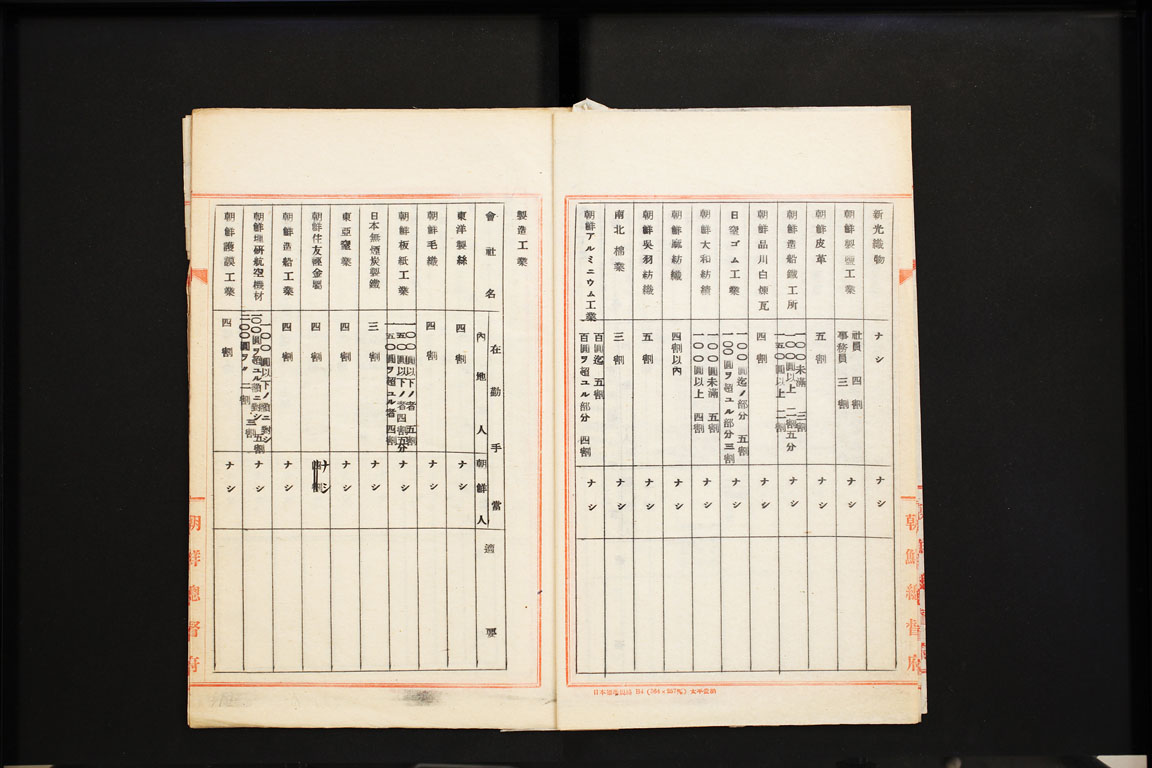 新光織物 ナシ ナシ
朝鮮製鹽工業 社員 四割 事務員 三割 ナシ
朝鮮皮革 五割 ナシ
朝鮮造船鐵工所 一〇〇未滿 三割 一〇〇圓以上 二割五分 一五〇圓以上 二割 ナシ
朝鮮品川白煉瓦 四割 ナシ
日窒ゴム工業 一〇〇圓迄ノ部分 五割 一〇〇圓ヲ超ユル部分 三割 ナシ
朝鮮大和紡績 一〇〇圓未滿 五割 一〇〇圓以上 四割 ナシ
朝鮮麻紡織 四割以內 ナシ
朝鮮吳羽紡織 五割 ナシ
南北棉業 三割 ナシ
朝鮮アルミニウム工業 百圓迄 五割 百圓ヲ超ユル部分 四割 ナシ
朝鮮總督府
製造工業
會社名 在勤手當 內地人 朝鮮人 適要
東洋製絲 四割 ナシ
朝鮮毛織 四割 ナシ
朝鮮板紙工業 一〇〇圓以下ノ者 五割 一五〇圓以下ノ者 四割五分 一五〇圓ヲ超ユル者 四割 ナシ
日本無煙炭製鐵 三割 ナシ
東亞窯業 四割 ナシ
朝鮮住友輕金屬 四割 ナシ
朝鮮造船工業 四割 ナシ
朝鮮理硏航空機材 一〇〇圓以下ノ額ニ對シ 五割 一〇〇圓ヲ超ユル額ニ對シ 三割 二〇〇圓ヲ〃 二割 ナシ
朝鮮護謨工業 四割 ナシ
朝鮮總督府